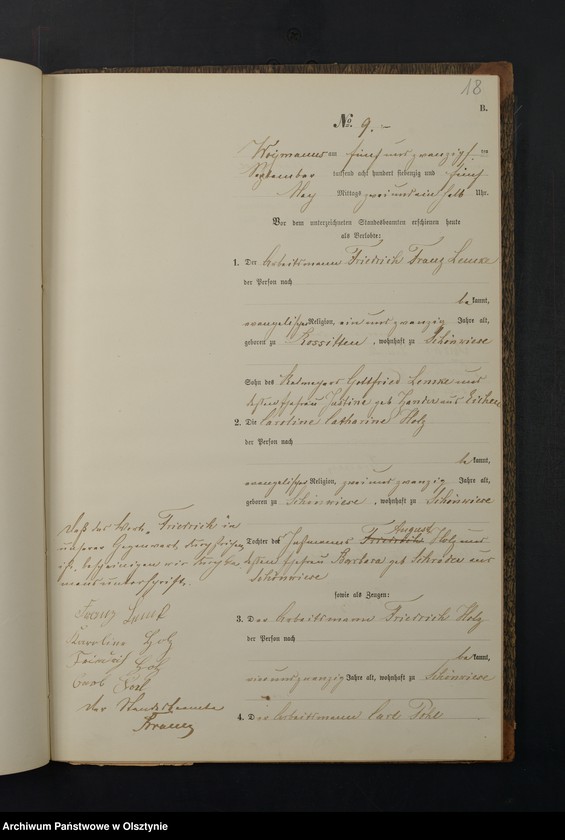 18
B.
No. 9.
am fünf und zwanzigsten
September tausend acht hundert siebenzig und fünf
Mittags zwei und ein halb Uhr.
Vor dem unterzeichneten Standesbeamten erschienen heute
als Verlobte:
1. Der Arbeitsmann Friedrich Franz Lemke
der Person nach
be kannt,
evangelischer Religion, ein und zwanzig Jahre alt,
geboren zu Rossitten, wohnhaft zu Schönwiese
Sohn des Gottfried Lemke und
dessen Ehefrau Justine geb aus
2. Die Caroline Catharine Holz
der Person nach
be kannt,
evangelischer Religion, zwei und zwanzig Jahre alt,
geboren zu Schönwiese, wohnhaft zu Schönwiese
August
Tochter des Friedrich Holz und
dessen Ehefrau Barbara geb aus
Schönwiese
Daß das Wort "Friedrich" in
unserer Gegenwart durchstrichen
ist, bescheinigen wir durch
Namensunterschrift.
Franz
Karoline Holz
Holz
Der Standesbeamte
sowie als Zeugen:
3. Der Arbeitsmann Friedrich Holz
der Person nach
be kannt,
vier und zwanzig Jahre alt, wohnhaft zu Schönwiese
4. Der Arbeitsmann Carl
Archiwum Państwowe w Olsztynie